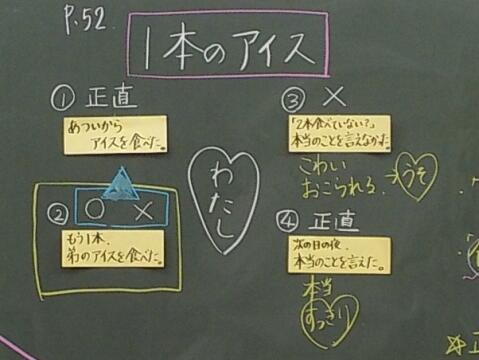 P.52
1本のアイス
① 正直
あついから
アイスを食べた。
② ○ ×
もう1本、
弟のアイスを食べた。
わたし
③ ×
「2本食べていない?」
本当のことを言えなかった。
こわい
おこられる →うそ
④ 正直
次の日の夜、
本当のことを言えた。
本当
すっきり